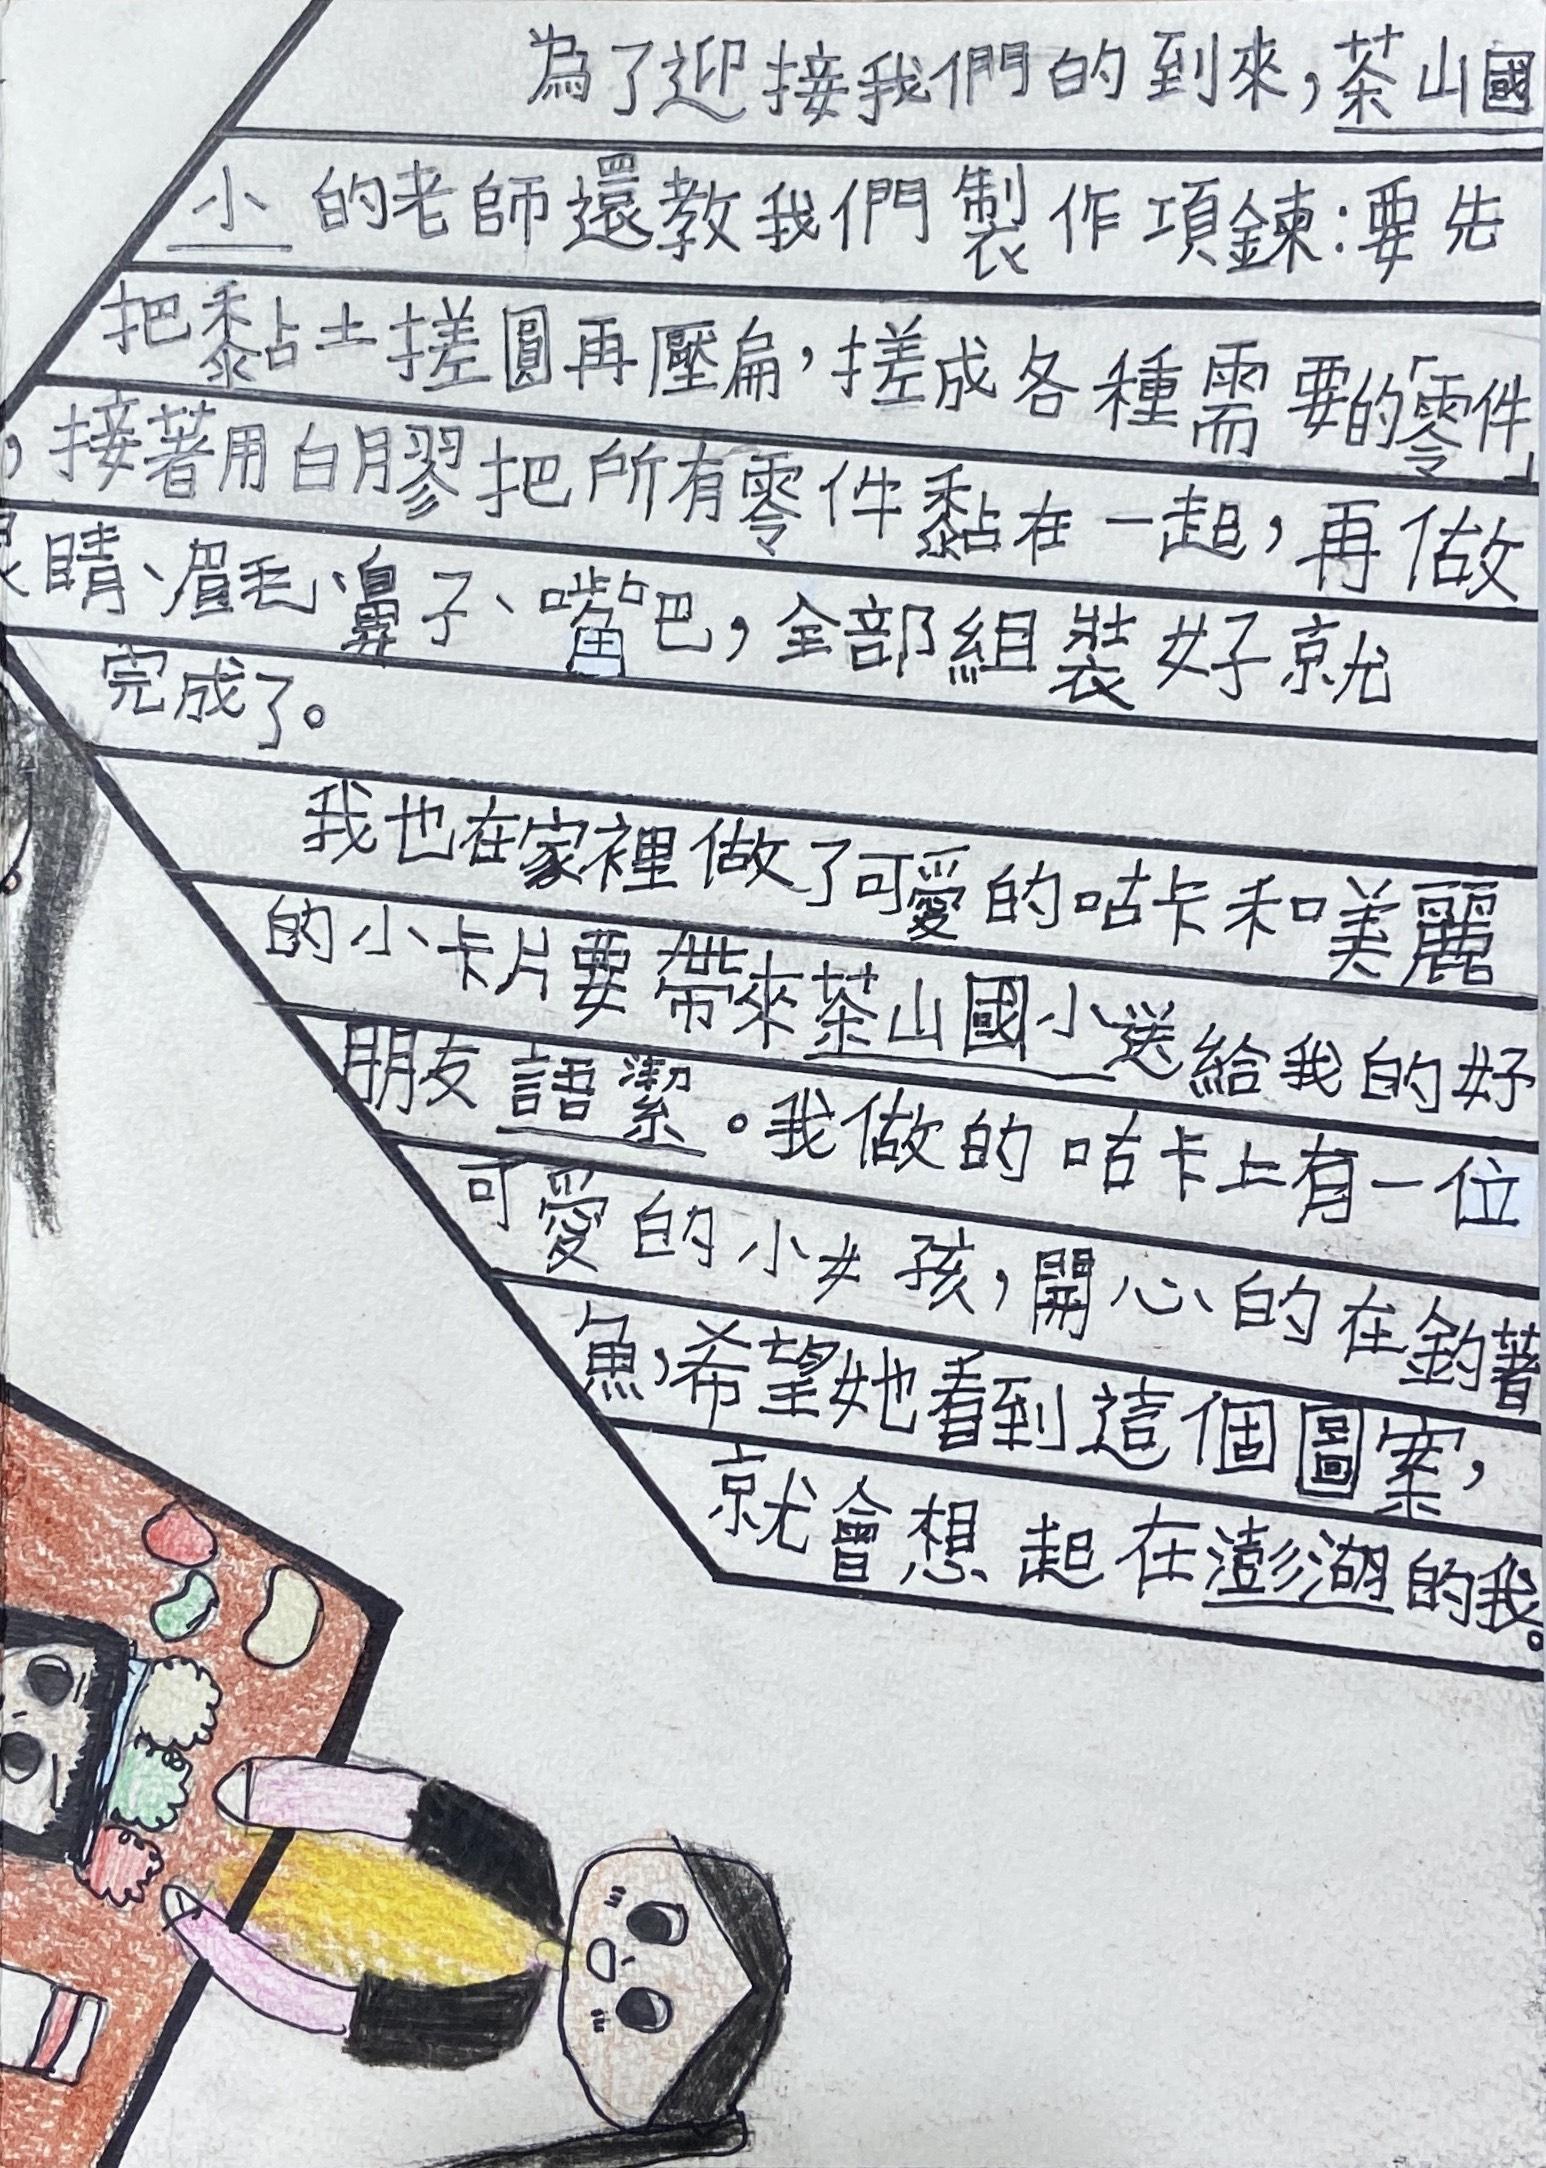 為了迎接我們的到來，茶山國
小的老師還教我們製作項鍊：要先
把黏土搓圓再壓扁，搓成各種需要的「零件」
，接著用白膠把所有零件黏在一起，再做
眼睛、眉毛、鼻子、嘴巴，全部組裝好就
完成了。
我也在家裡做了可愛的咕卡和美麗
的小卡片要帶來茶山國小送給我的好
朋友語潔。我做的咕卡上有一位
可愛的小女孩，開心的在釣著
魚，希望她看到這個圖案，
就會想起在澎湖的我。